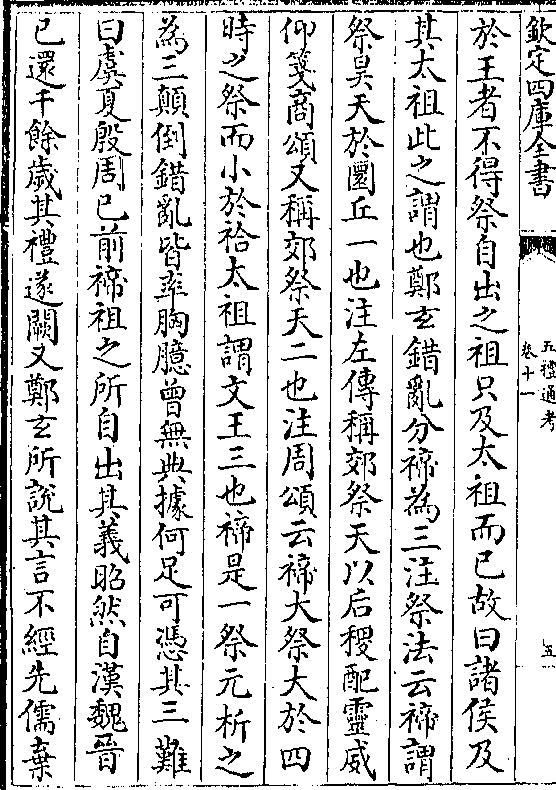 欽定四庫全書
五禮通考
卷十一
五
於王者不得祭自出之祖只及太祖而已故曰諸侯及
其太祖此之謂也鄭玄錯亂分禘為三注祭法云禘謂
祭昊天於圜丘一也注左傳稱郊祭天以后稷配靈威
仰箋商頌又稱郊祭天二也注周頌云禘大祭大於四
時之祭而小於祫太祖謂文王三也禘是一祭元析之
為三顛倒錯亂皆率胸臆曾無典據何足可憑其三難
曰虞夏殷周已前禘祖之所自出其義昭然自漢魏晉
已還千餘歲其禮遂闕又鄭玄所説其言不經先儒棄